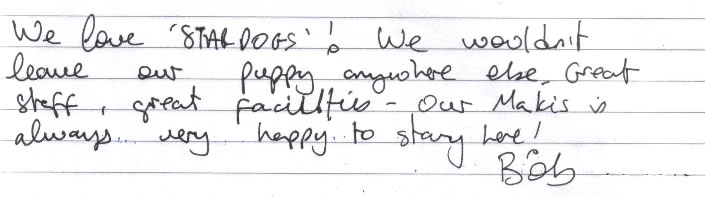 We love 'STARDOGS'! We wouldn't
leave our puppy anywhere else. Great
staff, great facilities - Our Makis is
always very happy to stay here!
Bob